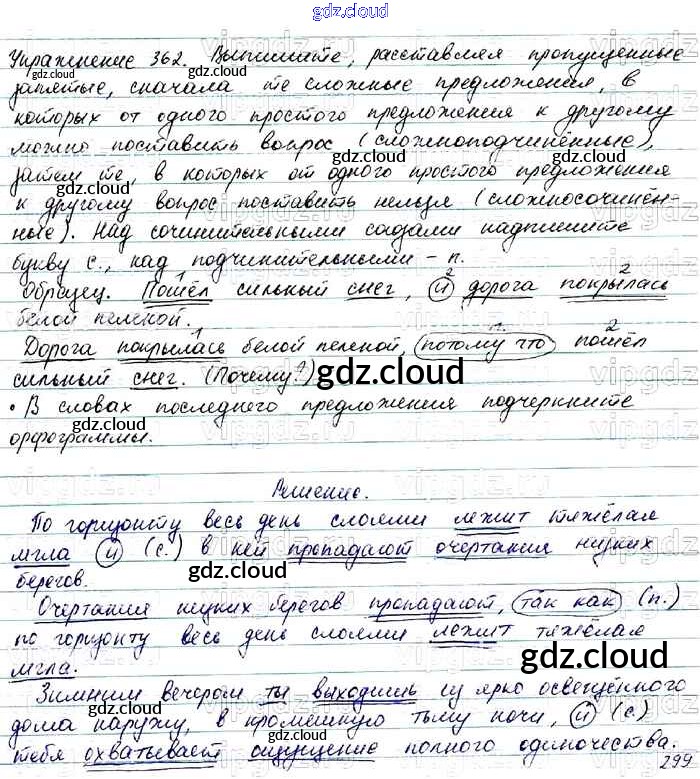 gdz.cloud
Упражнение 362. Выпишите, расставляя пропущенные
запятые, сначала те сложные предложения, в
которых от одного простого предложения к другому
можно поставить вопрос (сложноподчинённые),
затем те, в которых от одного простого предложения
к другому вопрос поставить нельзя (сложносочинён-
ные). Над сочинительными союзами надпишите
букву с., над подчинительными – п.
Образец. Пошёл сильный снег, и дорога покрылась
белой пеленой.
Дорога покрылась белой пеленой, потому что пошёл
сильный снег. (Почему?)
• В словах последнего предложения подчеркните
орфограммы.
Решение.
По горизонту весь день слоями лежит тяжёлая
мгла и (с.) в ней пропадают очертания низких
берегов.
Очертания низких берегов пропадают, так как (п.)
по горизонту весь день слоями лежит тяжёлая
мгла.
Зимним вечером ты выходишь из ярко освещённого
дома наружу, в кромешную тьму ночи, и (с.)
тебя охватывает ощущение полного одиночества.
299